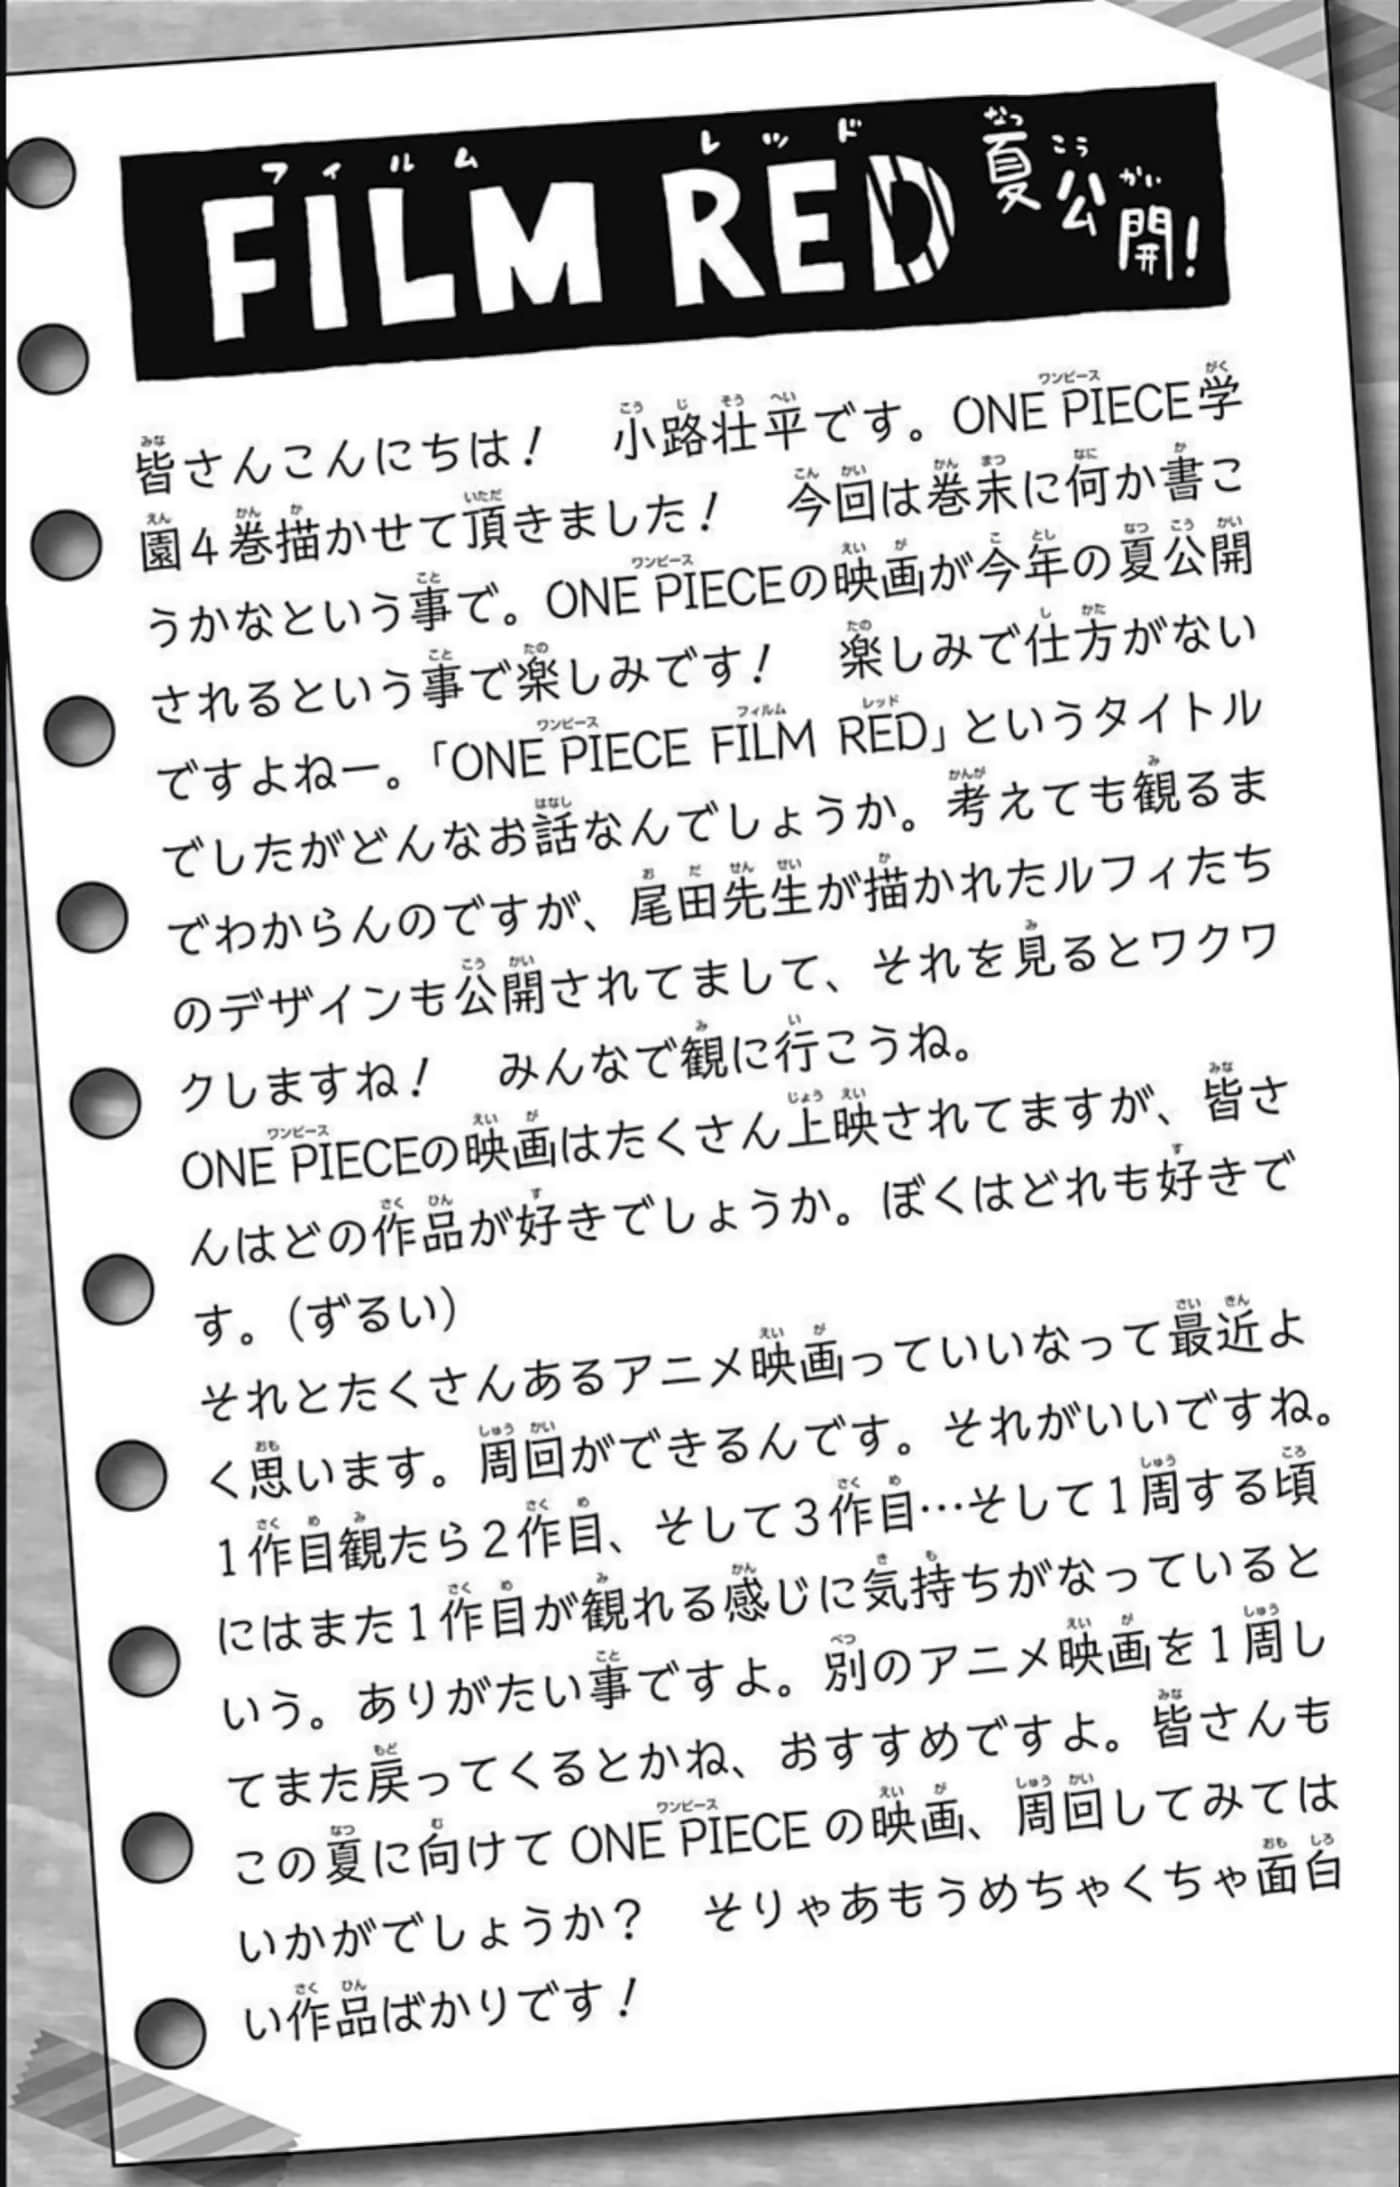 FILM RED 夏公開!
皆さんこんにちは！　小路壮平です。ONE PIECE学
園4巻描かせて頂きました！　今回は巻末に何か書こ
うかなという事で。ONE PIECEの映画が今年の夏公開
されるという事で楽しみです！　楽しみで仕方がない
ですよねー。「ONE PIECE FILM RED」というタイトル
でしたがどんなお話なんでしょうか。考えても観るま
でわからんのですが、尾田先生が描かれたルフィたち
のデザインも公開されてまして、それを見るとワクワ
クしますね！　みんなで観に行こうね。
ONE PIECEの映画はたくさん上映されてますが、皆さ
んはどの作品が好きでしょうか。ぼくはどれも好きで
す。（ずるい）
それとたくさんあるアニメ映画っていいなって最近よ
く思います。周回ができるんです。それがいいですね。
1作目観たら2作目、そして3作目…そして1周する頃
にはまた1作目が観れる感じに気持ちがなっていると
いう。ありがたい事ですよ。別のアニメ映画を1周し
てまた戻ってくるとかね、おすすめですよ。皆さんも
この夏に向けて ONE PIECE の映画、周回してみては
いかがでしょうか？　そりゃあもうめちゃくちゃ面白
い作品ばかりです！